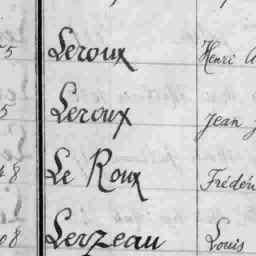 5 Leroux Henri
5 Leroux Jean
8 Le Roux
8 Lerzeau Louis